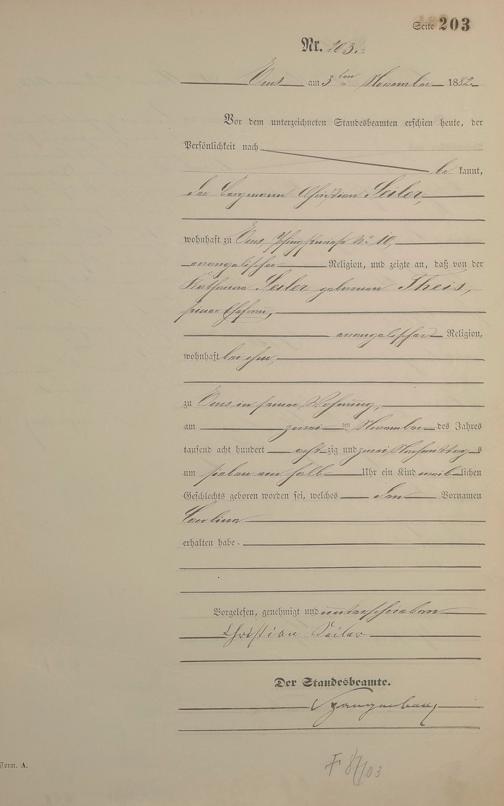 Seite 203
Nr. 203.
Ems am 3ten November 1882
Vor dem unterzeichneten Standesbeamten erschien heute, der
Persönlichkeit nach
be kannt,
der Bergmann Christian Seiler,
wohnhaft zu Ems, No 10,
evangelischer Religion, und zeigte an, daß von der
Katharina Seiler geborenen Theis,
seiner Ehefrau,
evangelischer Religion,
wohnhaft bei ihm,
zu Ems in seiner Wohnung,
am zwei ten November des Jahres
tausend acht hundert acht zig und zwei Nachmittags
um sieben ein halb Uhr ein Kind weib lichen
Geschlechts geboren worden sei, welches den Vornamen
erhalten habe.
Vorgelesen, genehmigt und unterschrieben
Christian Seiler
Der Standesbeamte.
Form. A.